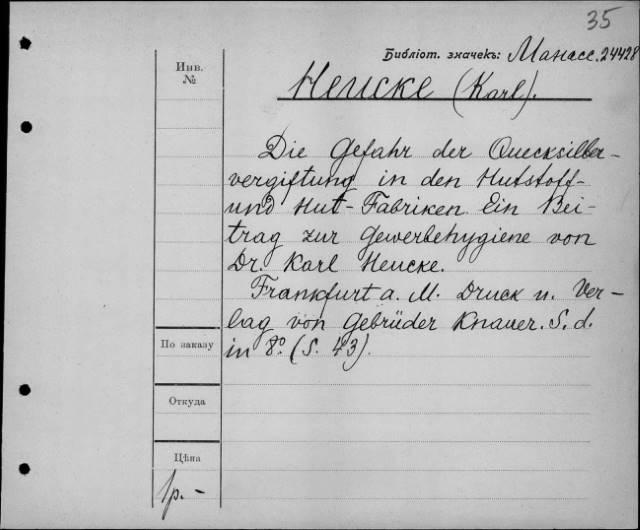 35
Библіот. значекъ: Манасс. 24428
Инв.
№
Heucke (Karl).
Die Gefahr der Quecksilber-
vergiftung in den Hutstoff-
und Hut-Fabriken. Ein Bei-
trag zur Gewerbehygiene von
Dr. Karl Heucke.
Frankfurt a. M. Druck u. Ver-
lag von Gebrüder Knauer. S. d.
in 8°. (S. 43).
По заказу
Откуда
Цѣна
1р. -